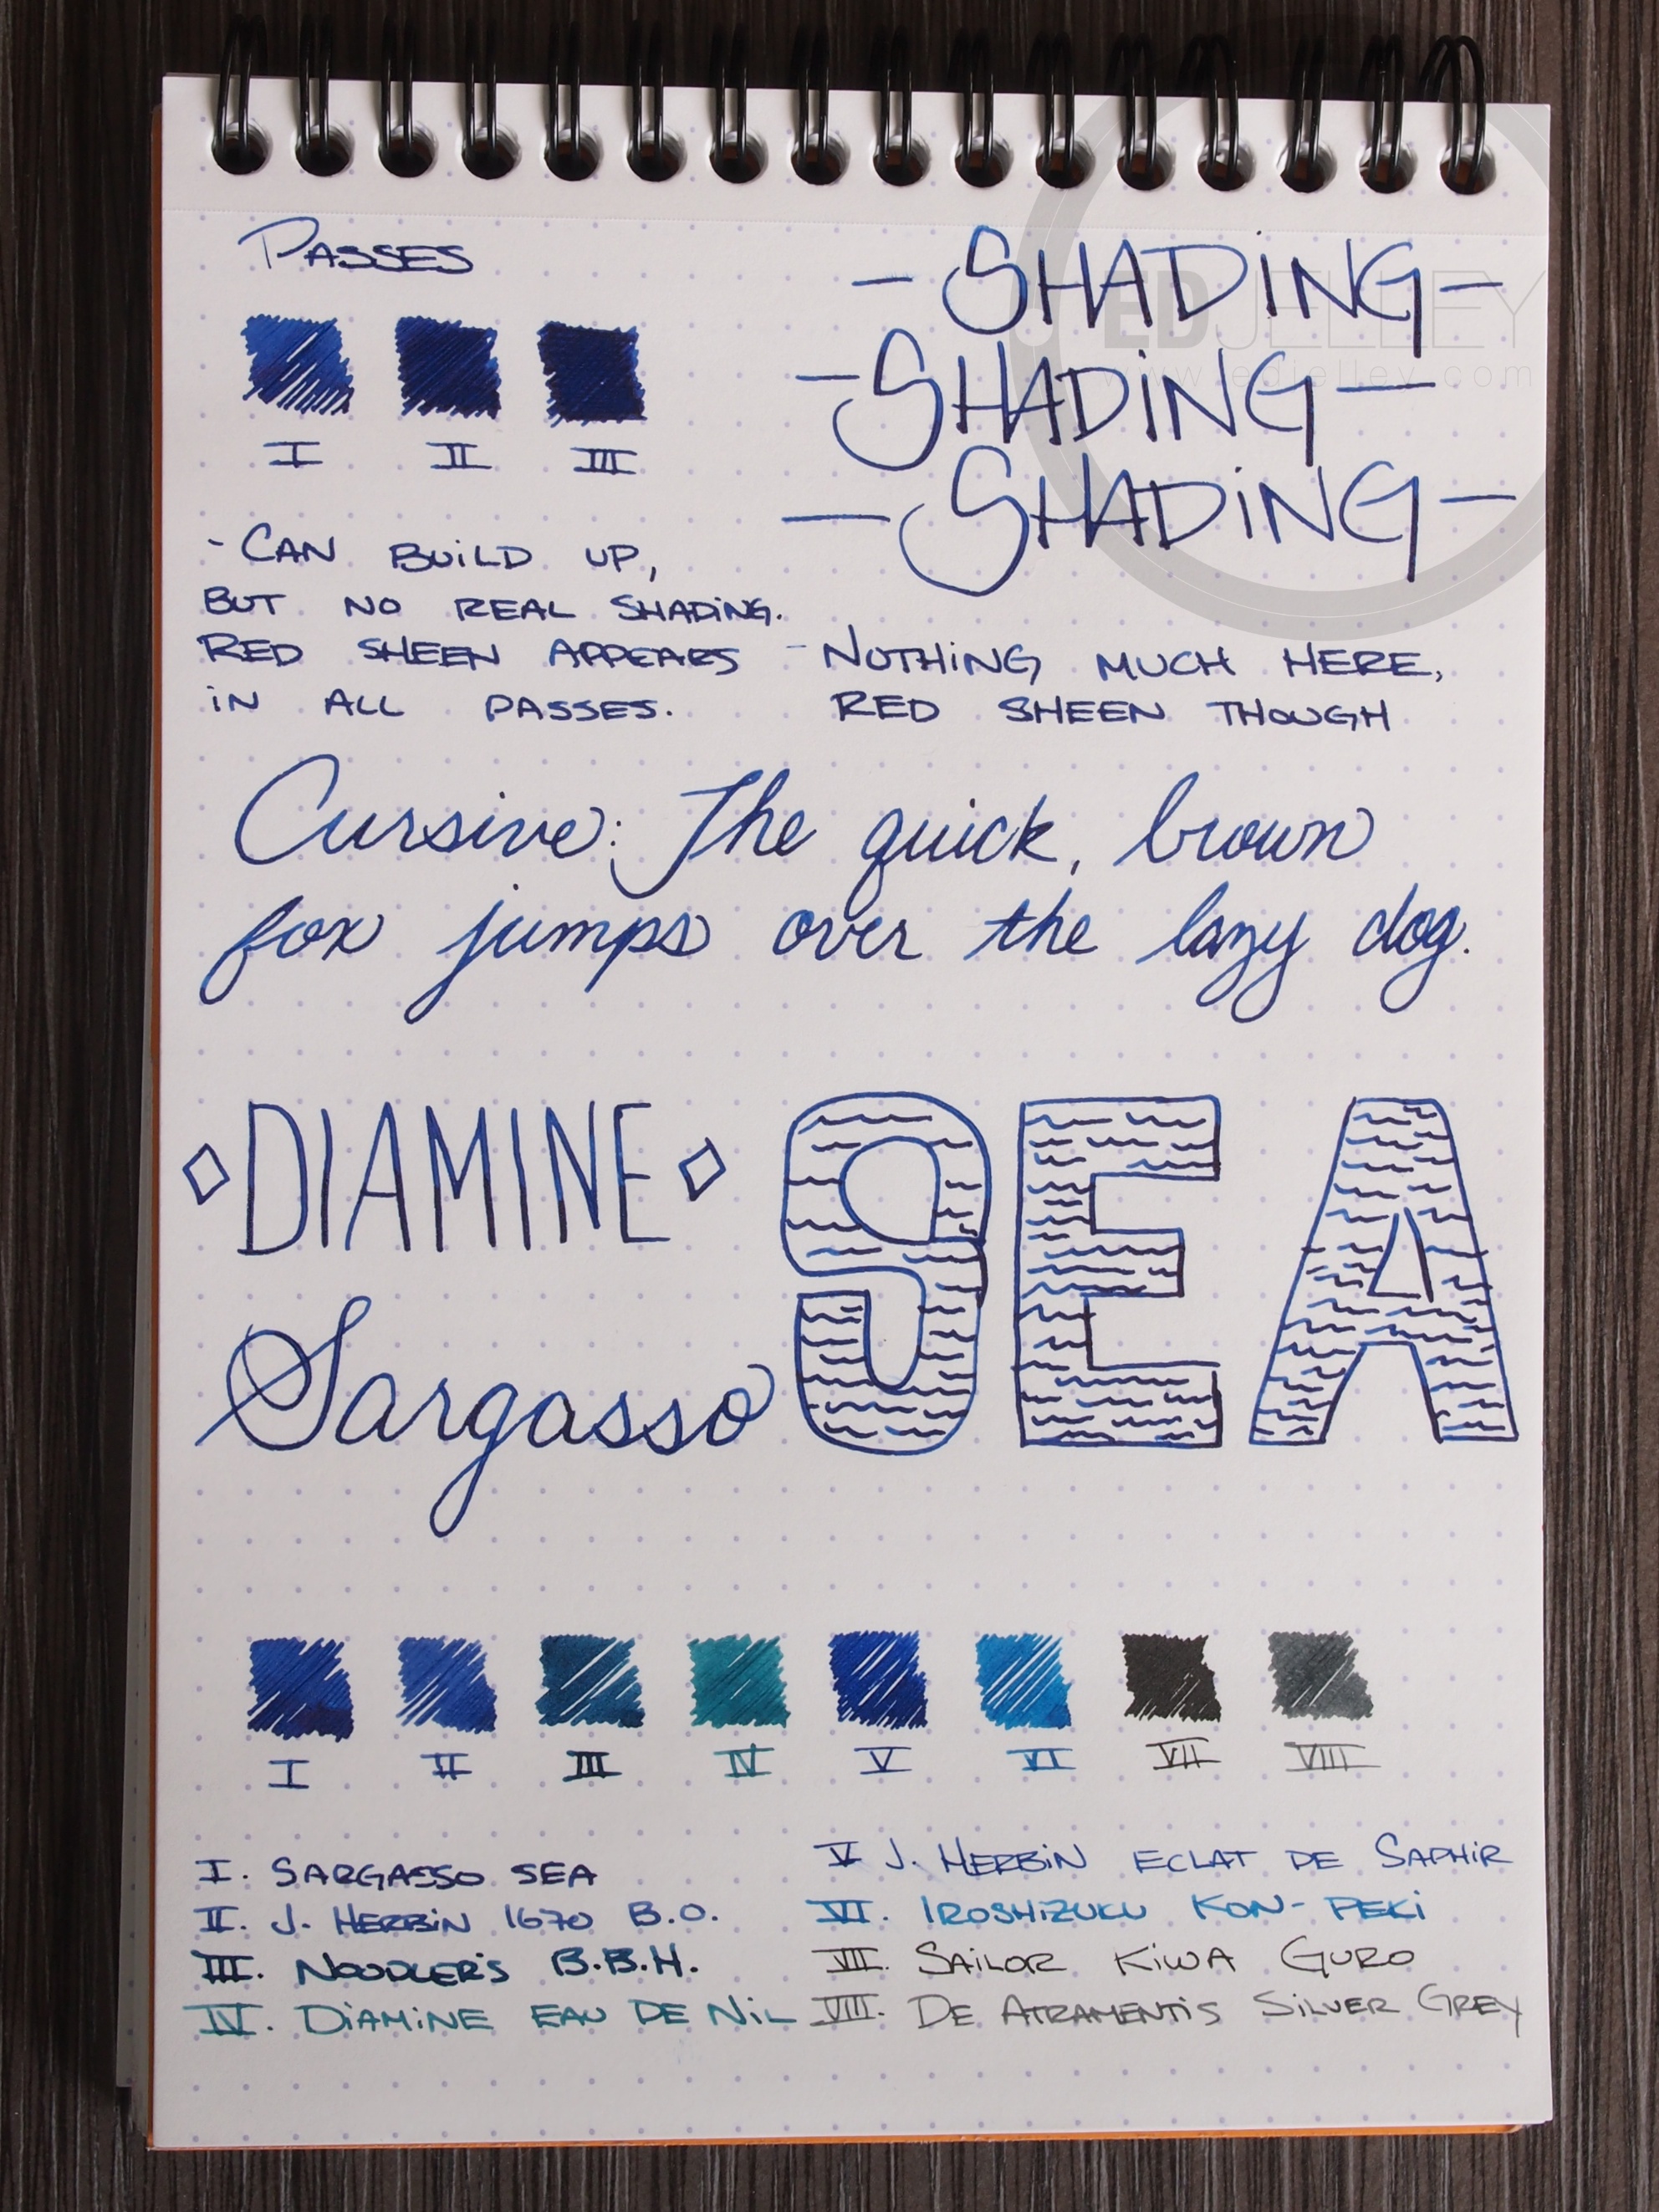 PASSES
I II III
- CAN BUILD UP,
BUT NO REAL SHADING.
RED SHEEN APPEARS
IN ALL PASSES.
- SHADING -
- SHADING -
- SHADING -
- NOTHING MUCH HERE,
RED SHEEN THOUGH
EDJELLEY
www.edjelley.com
Cursive: The quick, brown
fox jumps over the lazy dog.
DIAMINE
Sargasso
SEA
I II III IV V VI VII VIII
I. SARGASSO SEA
II. J. HERBIN 1670 B.O.
III. NOODLER'S B.B.H.
IV. DIAMINE EAU DE NIL
V J. HERBIN ECLAT DE SAPHIR
VI. IROSHIZUKU KON-PEKI
VII. SAILOR KIWA GURO
VIII. DE ATRAMENTIS SILVER GREY